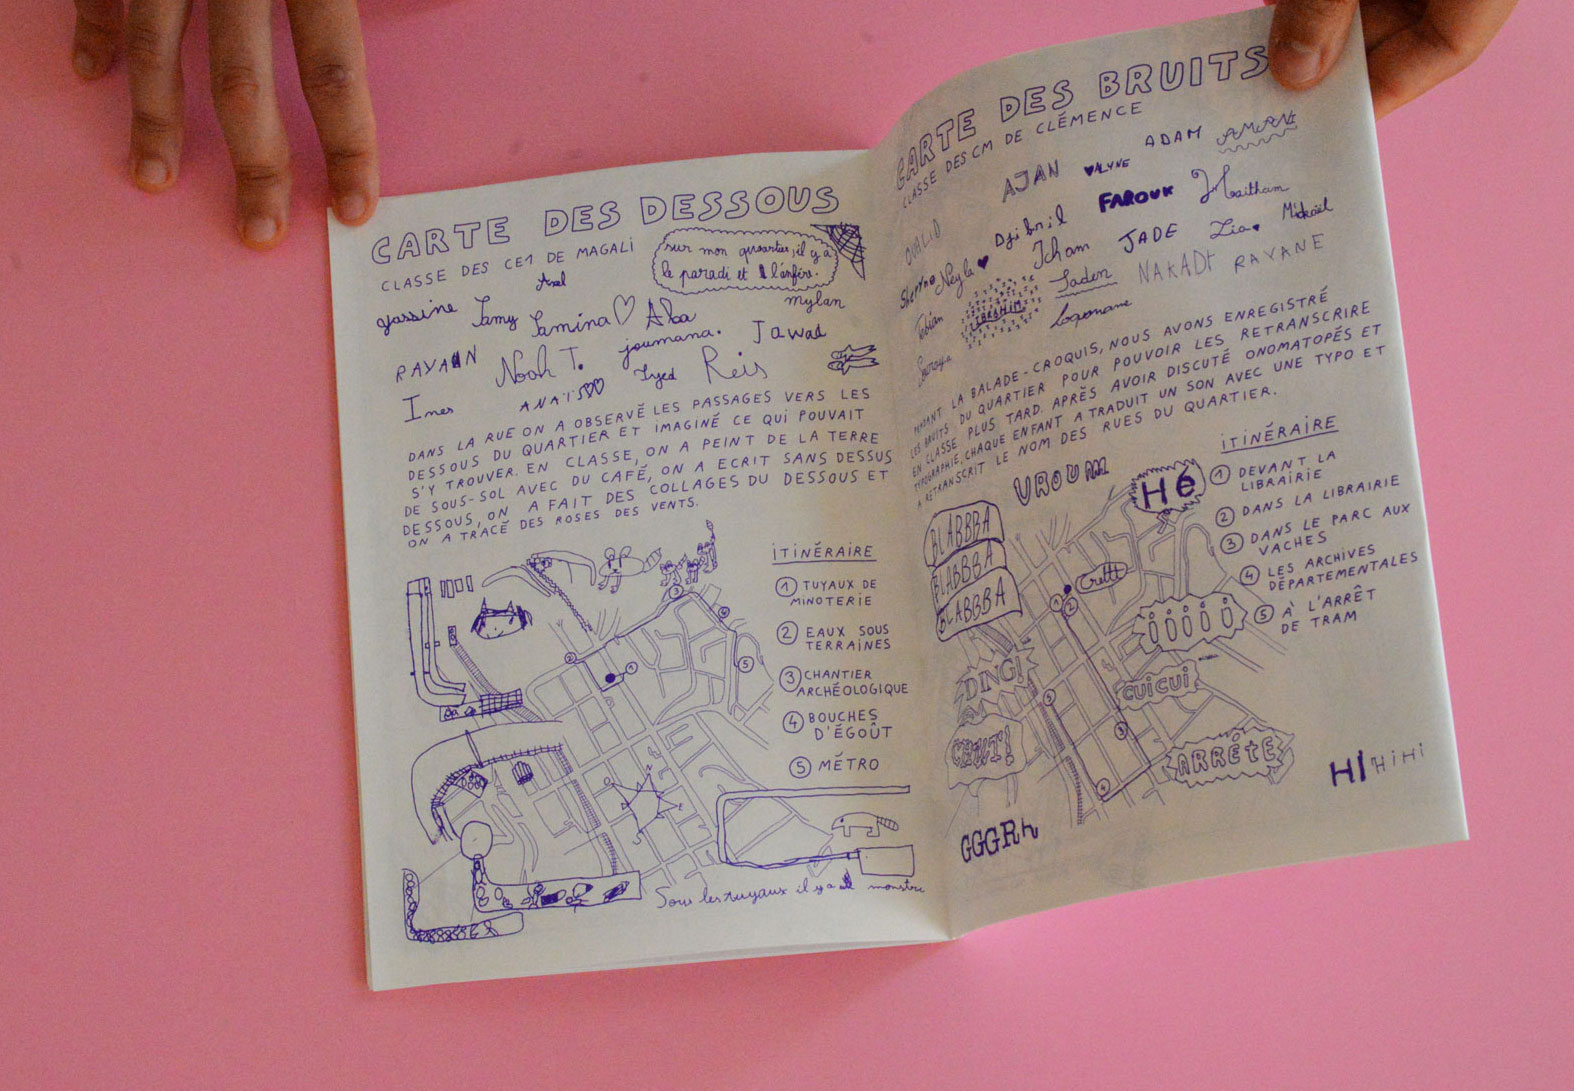 CARTE DES DESSOUS
CLASSE DES CE1 DE MAGALI
sur mon quartier, il y a
le paradi et l'enfère.
Axel
mylan
yassine Tamy Tamina Alba
RAYAN Noah T. joumana. Jawad
Ines ANAÏS Iyed Reis
DANS LA RUE ON A OBSERVÉ LES PASSAGES VERS LES
DESSOUS DU QUARTIER ET IMAGINÉ CE QUI POUVAIT
S'Y TROUVER. EN CLASSE, ON A PEINT DE LA TERRE
DE SOUS-SOL AVEC DU CAFÉ, ON A ECRIT SANS DESSUS
DESSOUS, ON A FAIT DES COLLAGES DU DESSOUS ET
ON A TRACÉ DES ROSES DES VENTS.
ITINÉRAIRE
1 TUYAUX DE
MINOTERIE
2 EAUX SOUS
TERRAINES
3 CHANTIER
ARCHÉOLOGIQUE
4 BOUCHES
D'ÉGOÛT
5 MÉTRO
3
4
5
2
1
Sous les tuyaux il y a monstre
CARTE DES BRUITS
CLASSE DES CM DE CLÉMENCE
AJAN ALYNE ADAM AMANI
OUALID Djibril FAROUK Haitham
Neyla Icham JADE Lia Mickaël
Fabian IBRAHIM Jaden NAKADI RAYANE
PENDANT LA BALADE-CROQUIS, NOUS AVONS ENREGISTRÉ
LES BRUITS DU QUARTIER POUR POUVOIR LES RETRANSCRIRE
EN CLASSE PLUS TARD. APRÈS AVOIR DISCUTÉ ONOMATOPÉS ET
TYPOGRAPHIE, CHAQUE ENFANT A TRADUIT UN SON AVEC UNE TYPO ET
A RETRANSCRIT LE NOM DES RUES DU QUARTIER.
ITINÉRAIRE
1 DEVANT LA
LIBRAIRIE
2 DANS LA LIBRAIRIE
3 DANS LE PARC AUX
VACHES
4 LES ARCHIVES
DÉPARTEMENTALES
5 À L'ARRÊT
DE TRAM
VROUM
Hé
BLABBBA
BLABBBA
BLABBBA
1
2
iiiii
DING!
cuicui
5
3
CHUT!
ARRÊTE
4
HIHIHI
GGGRh